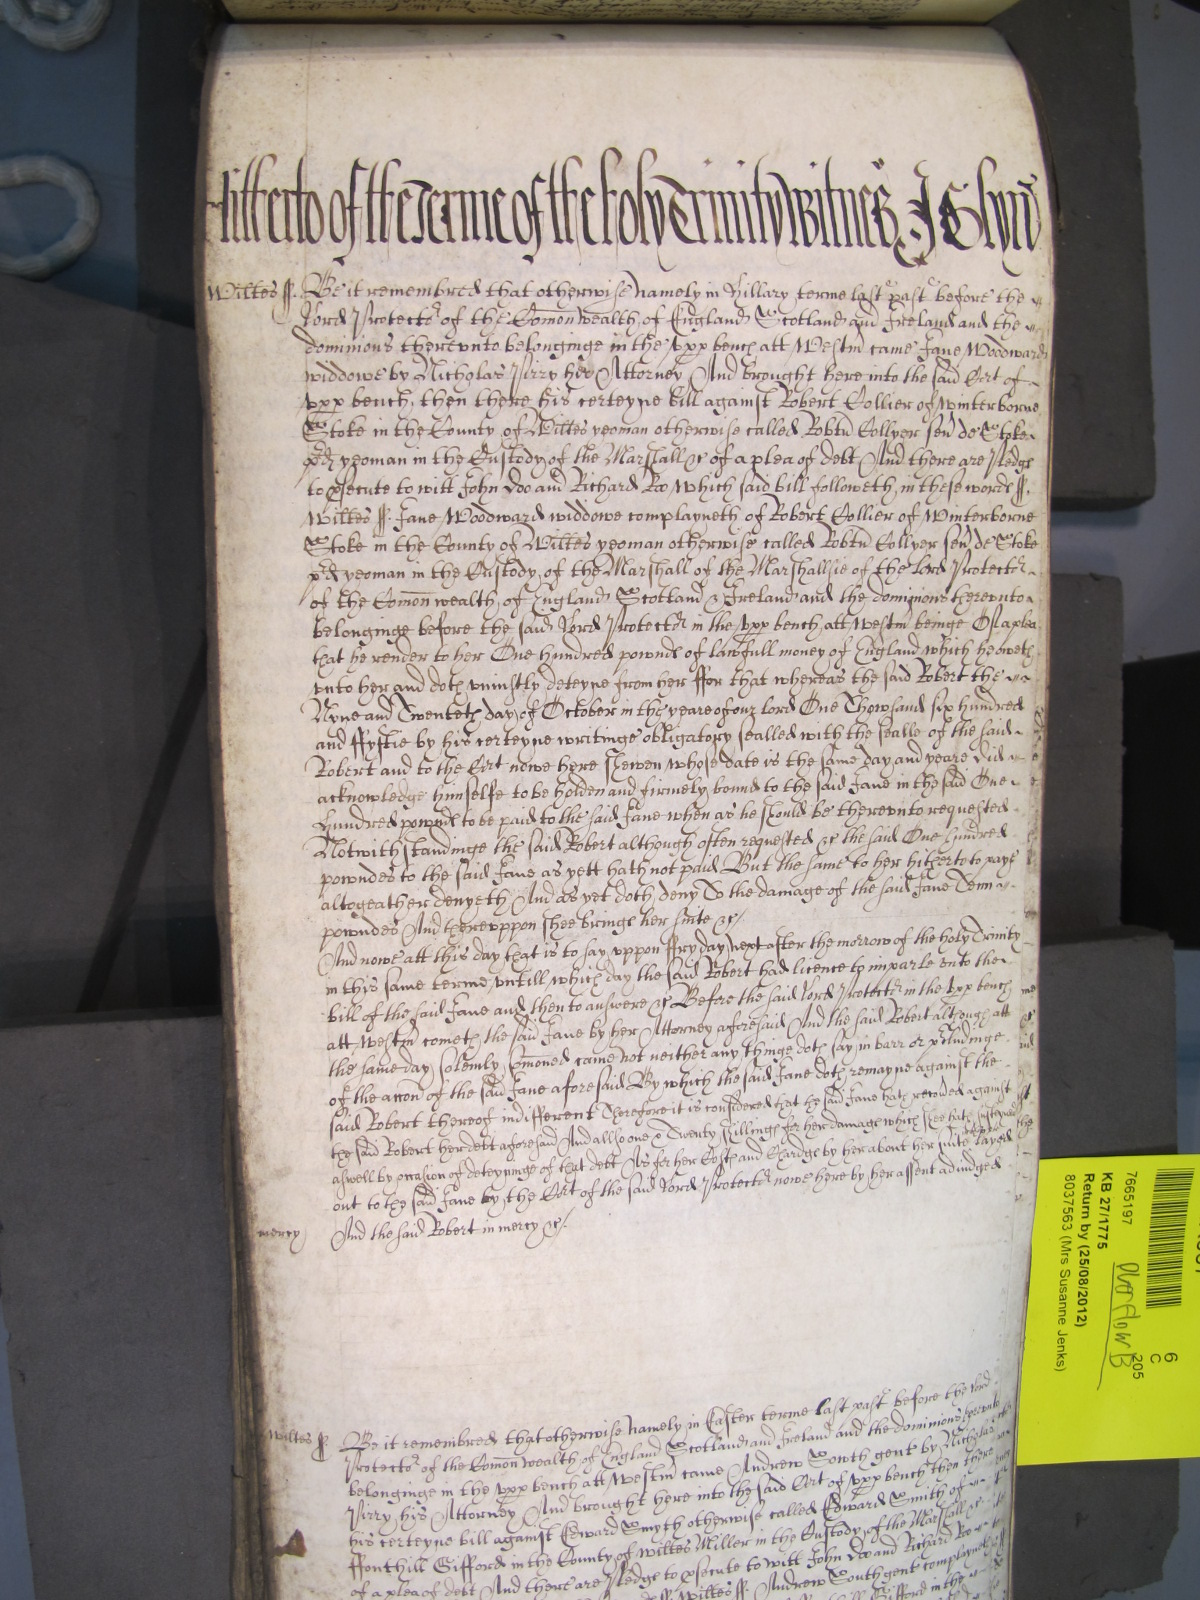 Hitherto of the Terme of the holy Trinity Witnes J Glyn
Wiltes ss. Be it remembred that otherwise namely in Hillary terme last past before the
Lord Protector of the Comon wealth of England Scotland and Ireland and the
dominions thereunto belonginge in the upp bench att Westm came Jane Woodward
widdowe by Nicholas Pirry her Attorney And brought here into the said Cort of
upp bench then there his certeyne bill against Robert Collier of Winterborne
Stoke in the County of Wiltes yeoman otherwise called Robtu Collyer sen de Stoke
pd yeoman in the Custody of the Marshall &c of a plea of debt And there are Pledge
to psecute to witt John Doo and Richard Roo which said bill followeth in these words ss.
Wiltes ss. Jane Woodward widdowe complayneth of Robert Collier of Winterborne
Stoke in the County of Wiltes yeoman otherwise called Robtu Collyer sen de Stoke
pd yeoman in the Custody of the Marshall of the Marshallsie of the Lord Protector
of the Comon wealth of England Scotland & Ireland and the dominions thereunto
belonginge before the said Lord Protector in the upp bench att Westm beinge Of a plea
that he render to her One hundred pownds of lawfull money of England which he oweth
unto her and doth uniustly deteyne from her ffor that whereas the said Robert the
Nyne and Twenteth day of October in the yeare of our lord One Thowsand six hundred
and ffyftie by his certeyne writinge obligatory sealled with the sealle of the said
Robert and to the Cort nowe here shewen whose date is the same day and yeare did
acknowledge himselfe to be holden and firmely bound to the said Jane in the said One
hundred pownds to be paid to the said Jane when as he should be thereunto requested
Notwithstandinge the said Robert although often requested &c the said One hundred
powndes to the said Jane as yett hath not paid But the same to her hitherto to paye
altogeather denyeth And as yet doth deny To the damage of the said Jane Tenn
powndes And thereuppon shee bringe her suite &c/
And nowe att this day that is to say uppon ffryday next after the morrow of the holy Trinity
in this same terme untill which day the said Robert had licence to imparle unto the
bill of the said Jane and then to answere &c Before the said Lord Protector in the upp bench
att Westm cometh the said Jane by her Attorney aforesaid And the said Robert although att
the same day solemly somoned came not neither any thinge doth say in barr or pcludinge
of the accon of the said Jane aforesaid By which the said Jane doth remayne against the
said Robert thereof indifferent Therefore it is considered that the said Jane hath recovered against
the said Robert her debt aforesaid And allso one & Twenty shillings for her damage which shee hath susteyned
aswell by occasion of deteyninge of that debt As for her Costs and Chardge by her about her suite layed
out to the said Jane by the Cort of the said Lord Protector nowe here by her assent adiudged
mercy And the said Robert in mercy &c/
Wiltes ss. Be it remembred that otherwise namely in Easter terme last past before the Lord
Protector of the Comon wealth of England Scotland and Ireland and the dominions thereunto
belonginge in the upp bench att Westm came Andrew South gent by Nicholas
Pirry his Attorney And brought here into the said Cort of upp bench then there
his certeyne bill against Edward Smyth otherwise called Edward Smith of
ffonthill Gifford in the County of Wiltes Miller in the Custody of the Marshall &c
of a plea of debt And there are Pledge to psecute to witt John Doo and Richard Roo
Wiltes ss. Andrew South gent complayneth
Gifford in the
7665197
KB 27/1775
Return by (25/08/2012)
8037563 (Mrs Susanne Jenks)
6
C
205